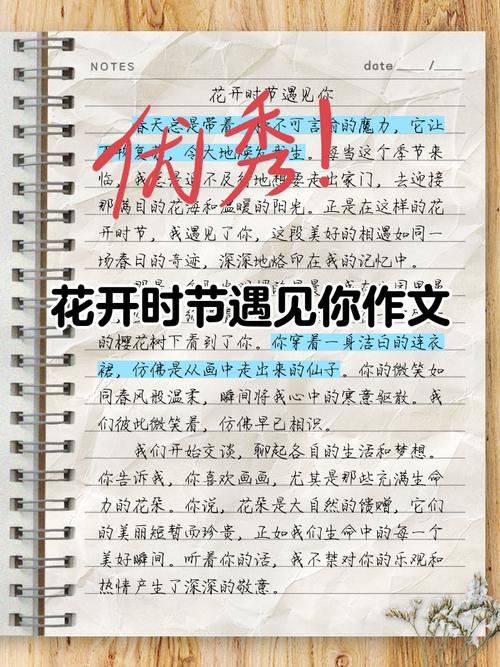 NOTES
date ___ /___
花开时节遇见你
优秀!
春天总是带着不可言喻的魔力，它让
万物复苏，令大地焕发生。每当这个季节来
临，我总是迫不及待地想要走出家门，去迎接
那满目的花海和温暖的阳光。正是在这样的花
开时节，我遇见了你，这段美好的相遇如同一
场春日的奇迹，深深地烙印在我的记忆中。
花开时节遇见你作文
的樱花树下看到了你。你穿着一身洁白的连衣
裙，仿佛是从画中走出来的仙子。你的微笑如
同春风般温柔，瞬间将我心中的寒意驱散。我
们彼此微笑着，仿佛早已相识。
我们开始交谈，聊起各自的生活和梦想。
你告诉我，你喜欢画画，尤其是那些充满生命
力的花朵。你说，花朵是大自然的馈赠，它们
的美丽短暂而珍贵，正如我们生命中的每一个
美好瞬间。听着你的话，我不禁对你的乐观和
热情产生了深深的敬意。